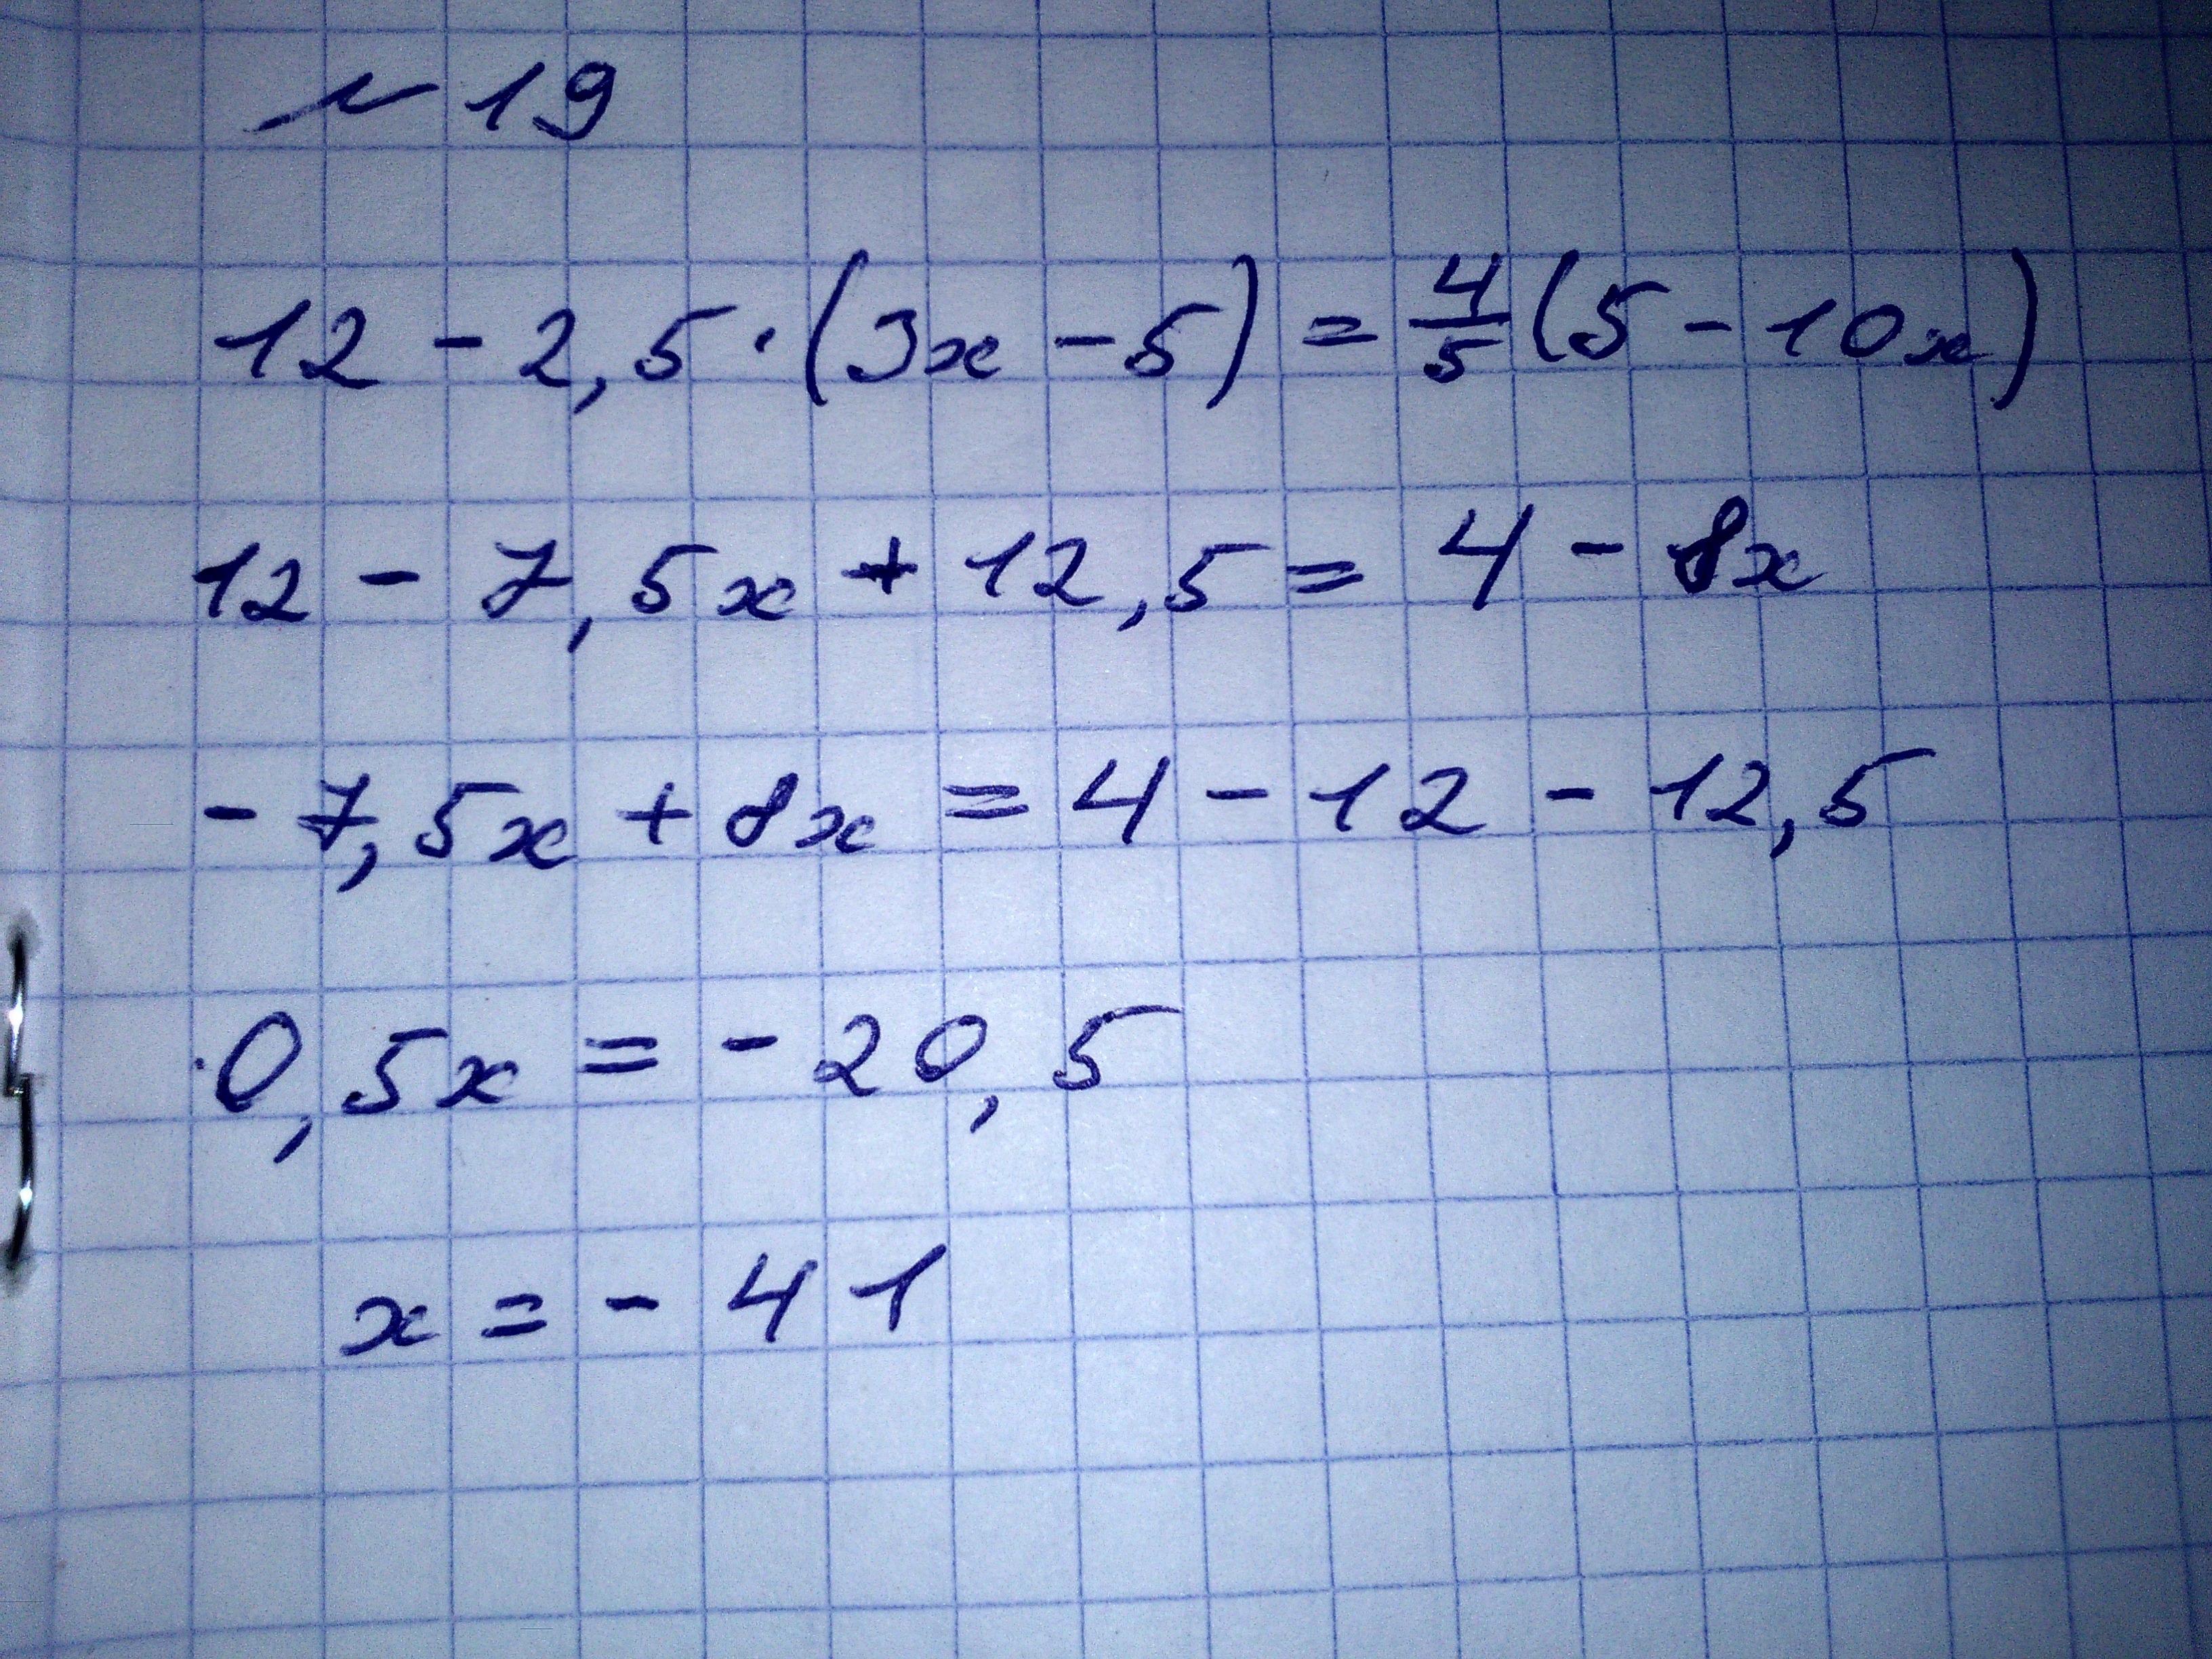 № 19
12 - 2,5 · (3x - 5) = 4/5 (5 - 10x)
12 - 7,5x + 12,5 = 4 - 8x
- 7,5x + 8x = 4 - 12 - 12,5
0,5x = - 20,5
x = - 41